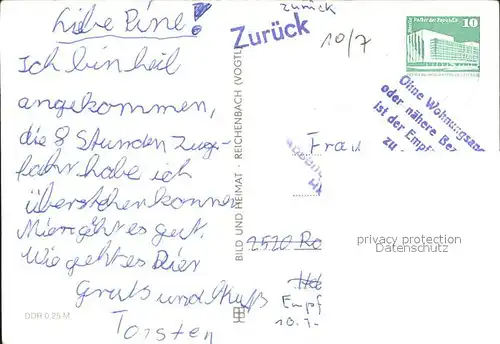 Liebe Pine!
Ich bin heil
angekommen,
die 8 Stunden Zug-
fahr habe ich
überstehen konne
Mier geht es gut.
Wie geht es Dier
Gruß und Kuß
Torsten
DDR 0,25 M
BILD UND HEIMAT · REICHENBACH (VOGTL
zurück
Zurück
10/7
10
Ohne Wohnungsang
oder nähere Bez
ist der Empf
zu
Frau
2520 Ro
Empf
10.7.
privacy protection
Datenschutz